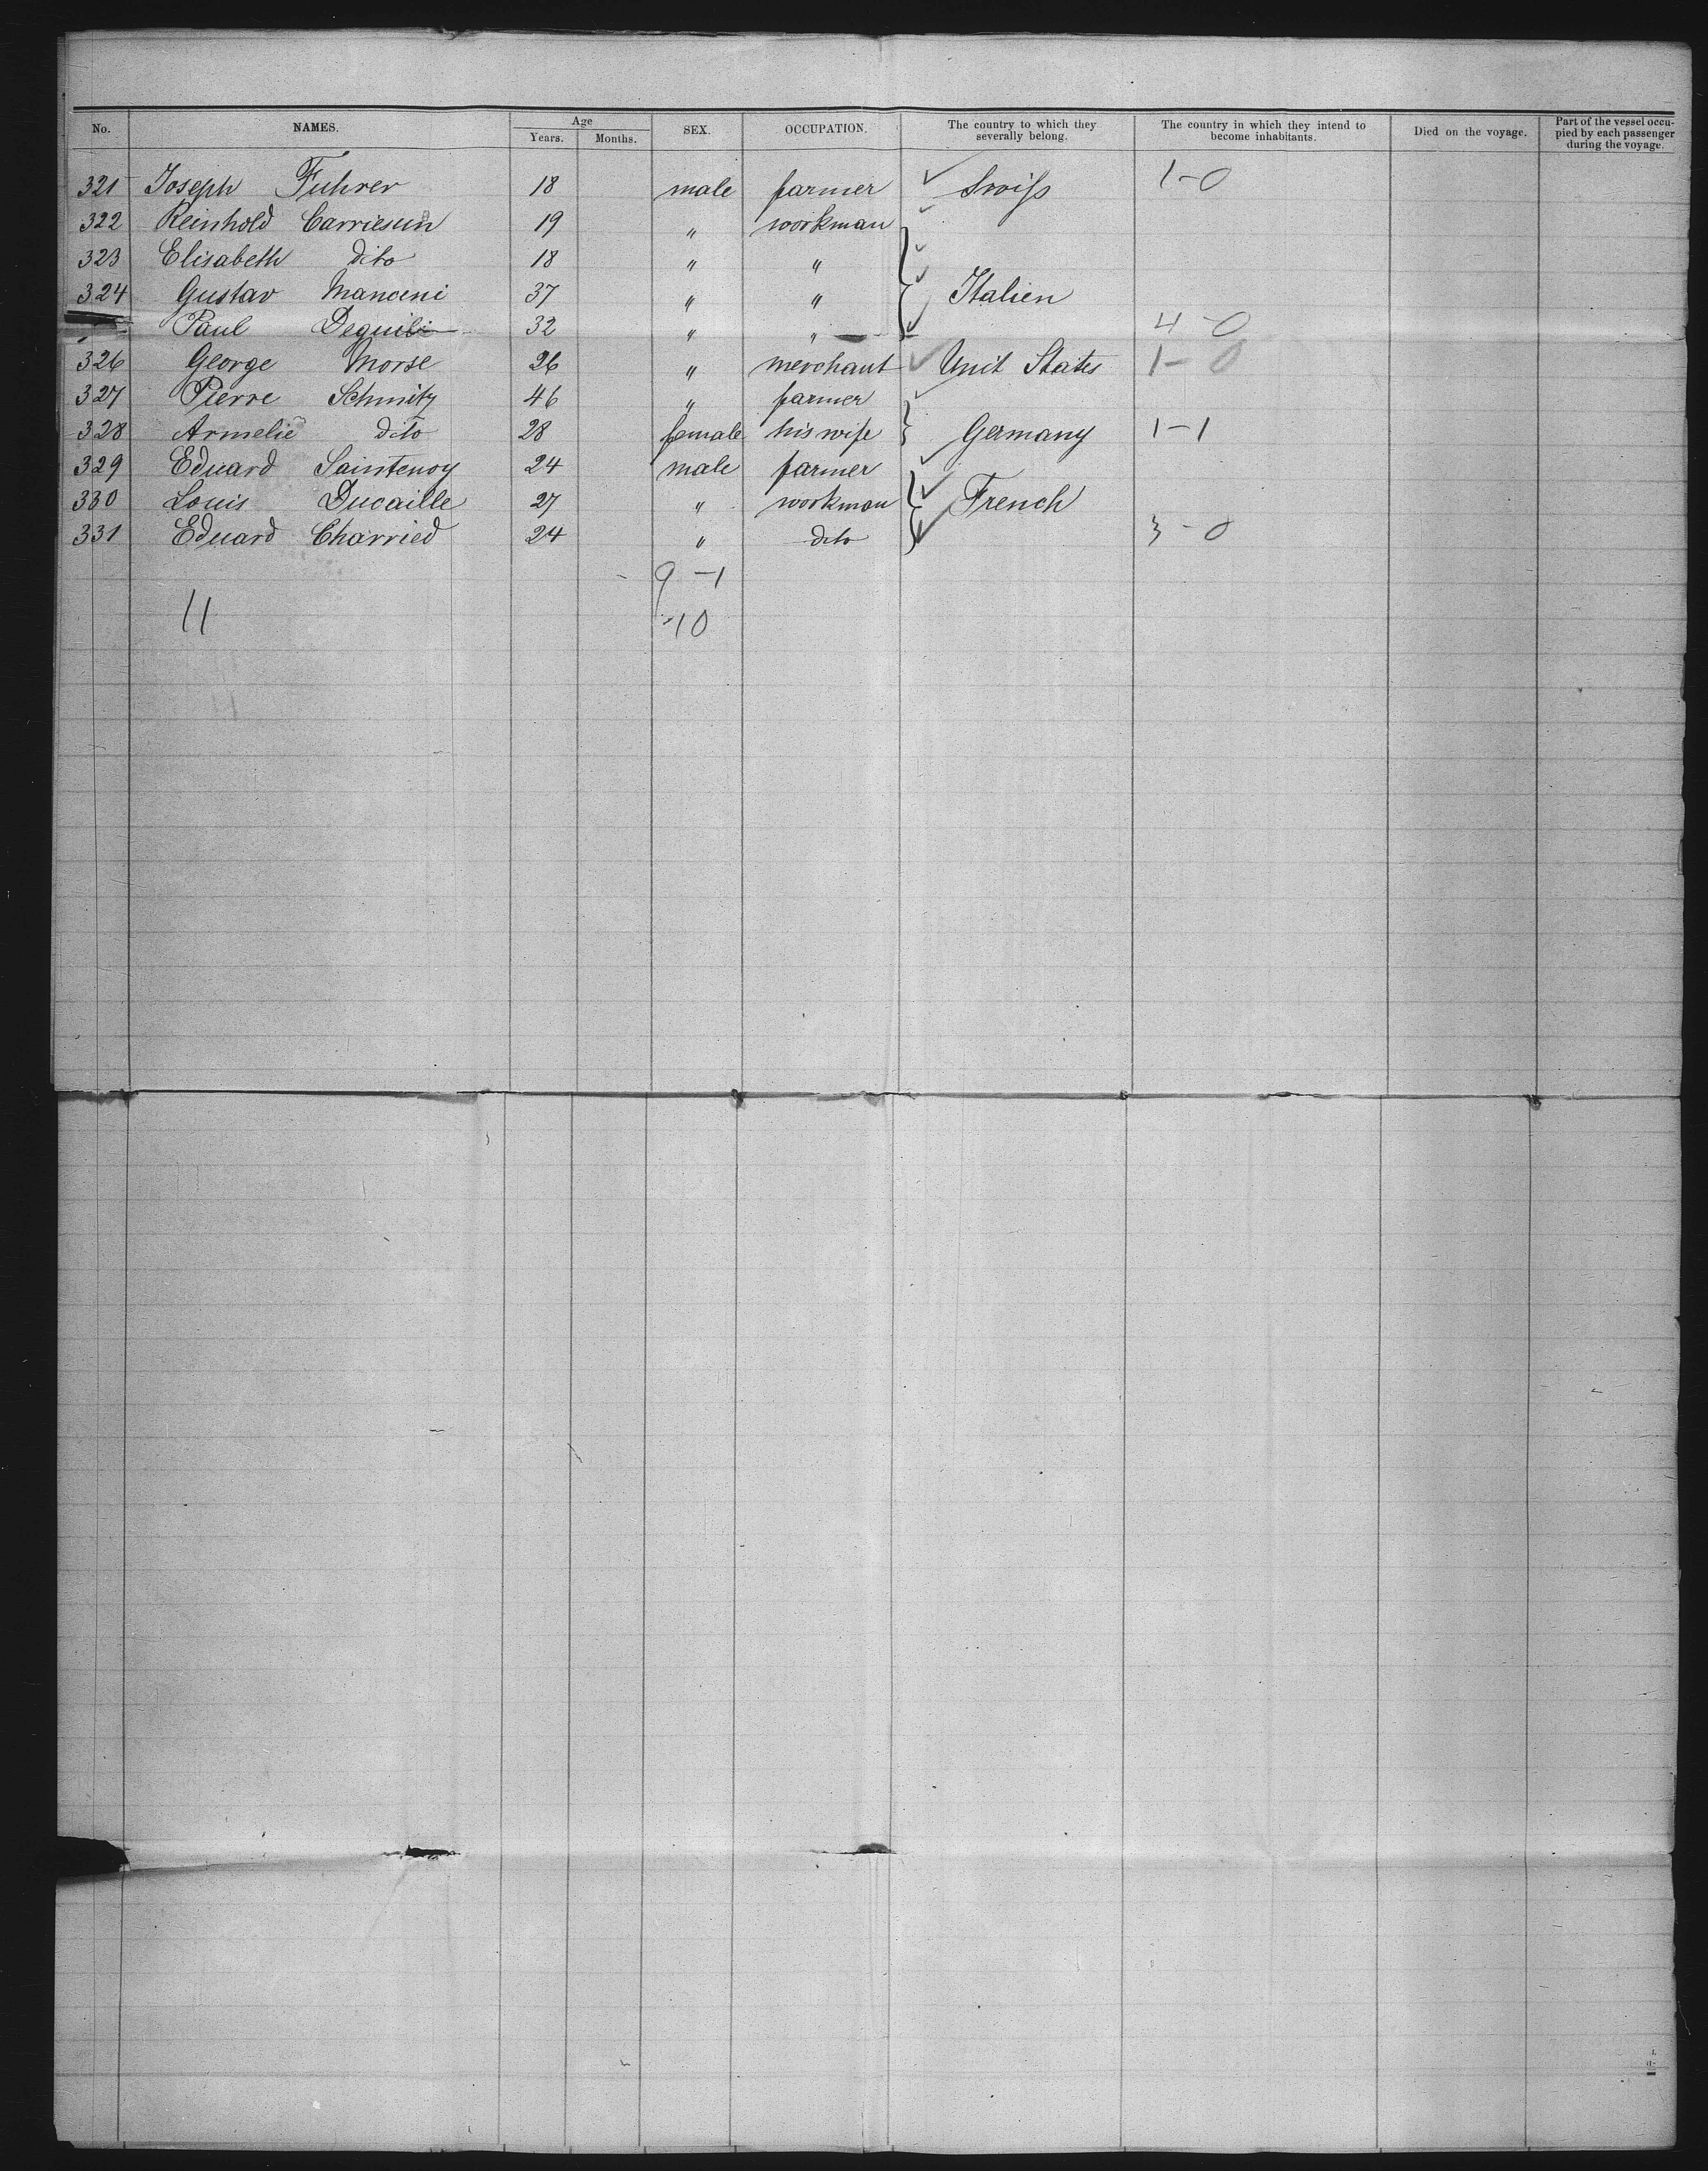 No. NAMES. Age Years. Months. SEX. OCCUPATION. The country to which they severally belong. The country in which they intend to become inhabitants. Died on the voyage. Part of the vessel occupied by each passenger during the voyage.
321 Joseph Fuhrer 18 male farmer Swiss 1-0
322 Reinhold Carriesun 19 " workman
323 Elisabeth dito 18 " "
324 Gustav Mancini 37 " " Italien
Paul Dequili 32 " " 4-0
326 George Morse 26 " merchant Unit States 1-0
327 Pierre Schmitz 46 " farmer
328 Armelie dito 28 female his wife Germany 1-1
329 Eduard Saintenoy 24 male farmer
330 Louis Ducaille 27 " workman French
331 Eduard Charried 24 " dito 3-0
9-1
11 10